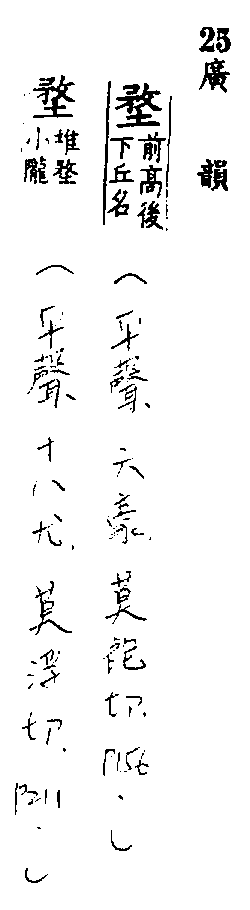 25廣韻
堥前高後下丘名（平聲、六豪、莫袍切、P156.）
堥堆堥小隴（平聲、十八尤、莫浮切、P211.）